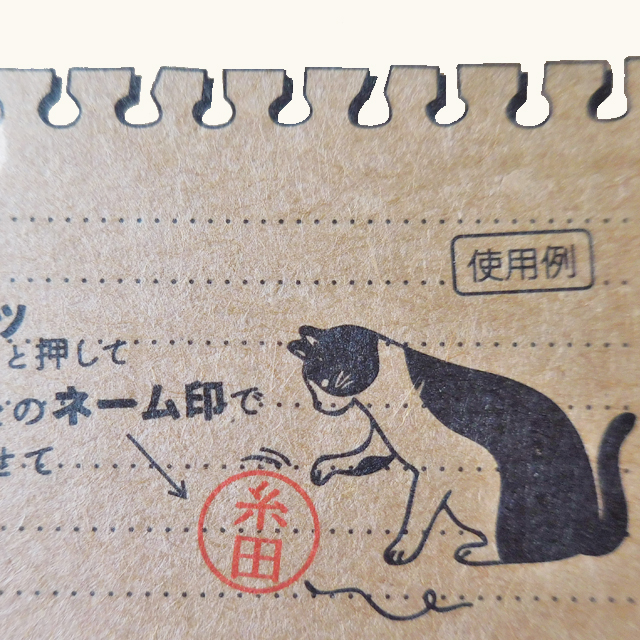 使用例
ッ
と押して
のネーム印で
せて
糸田